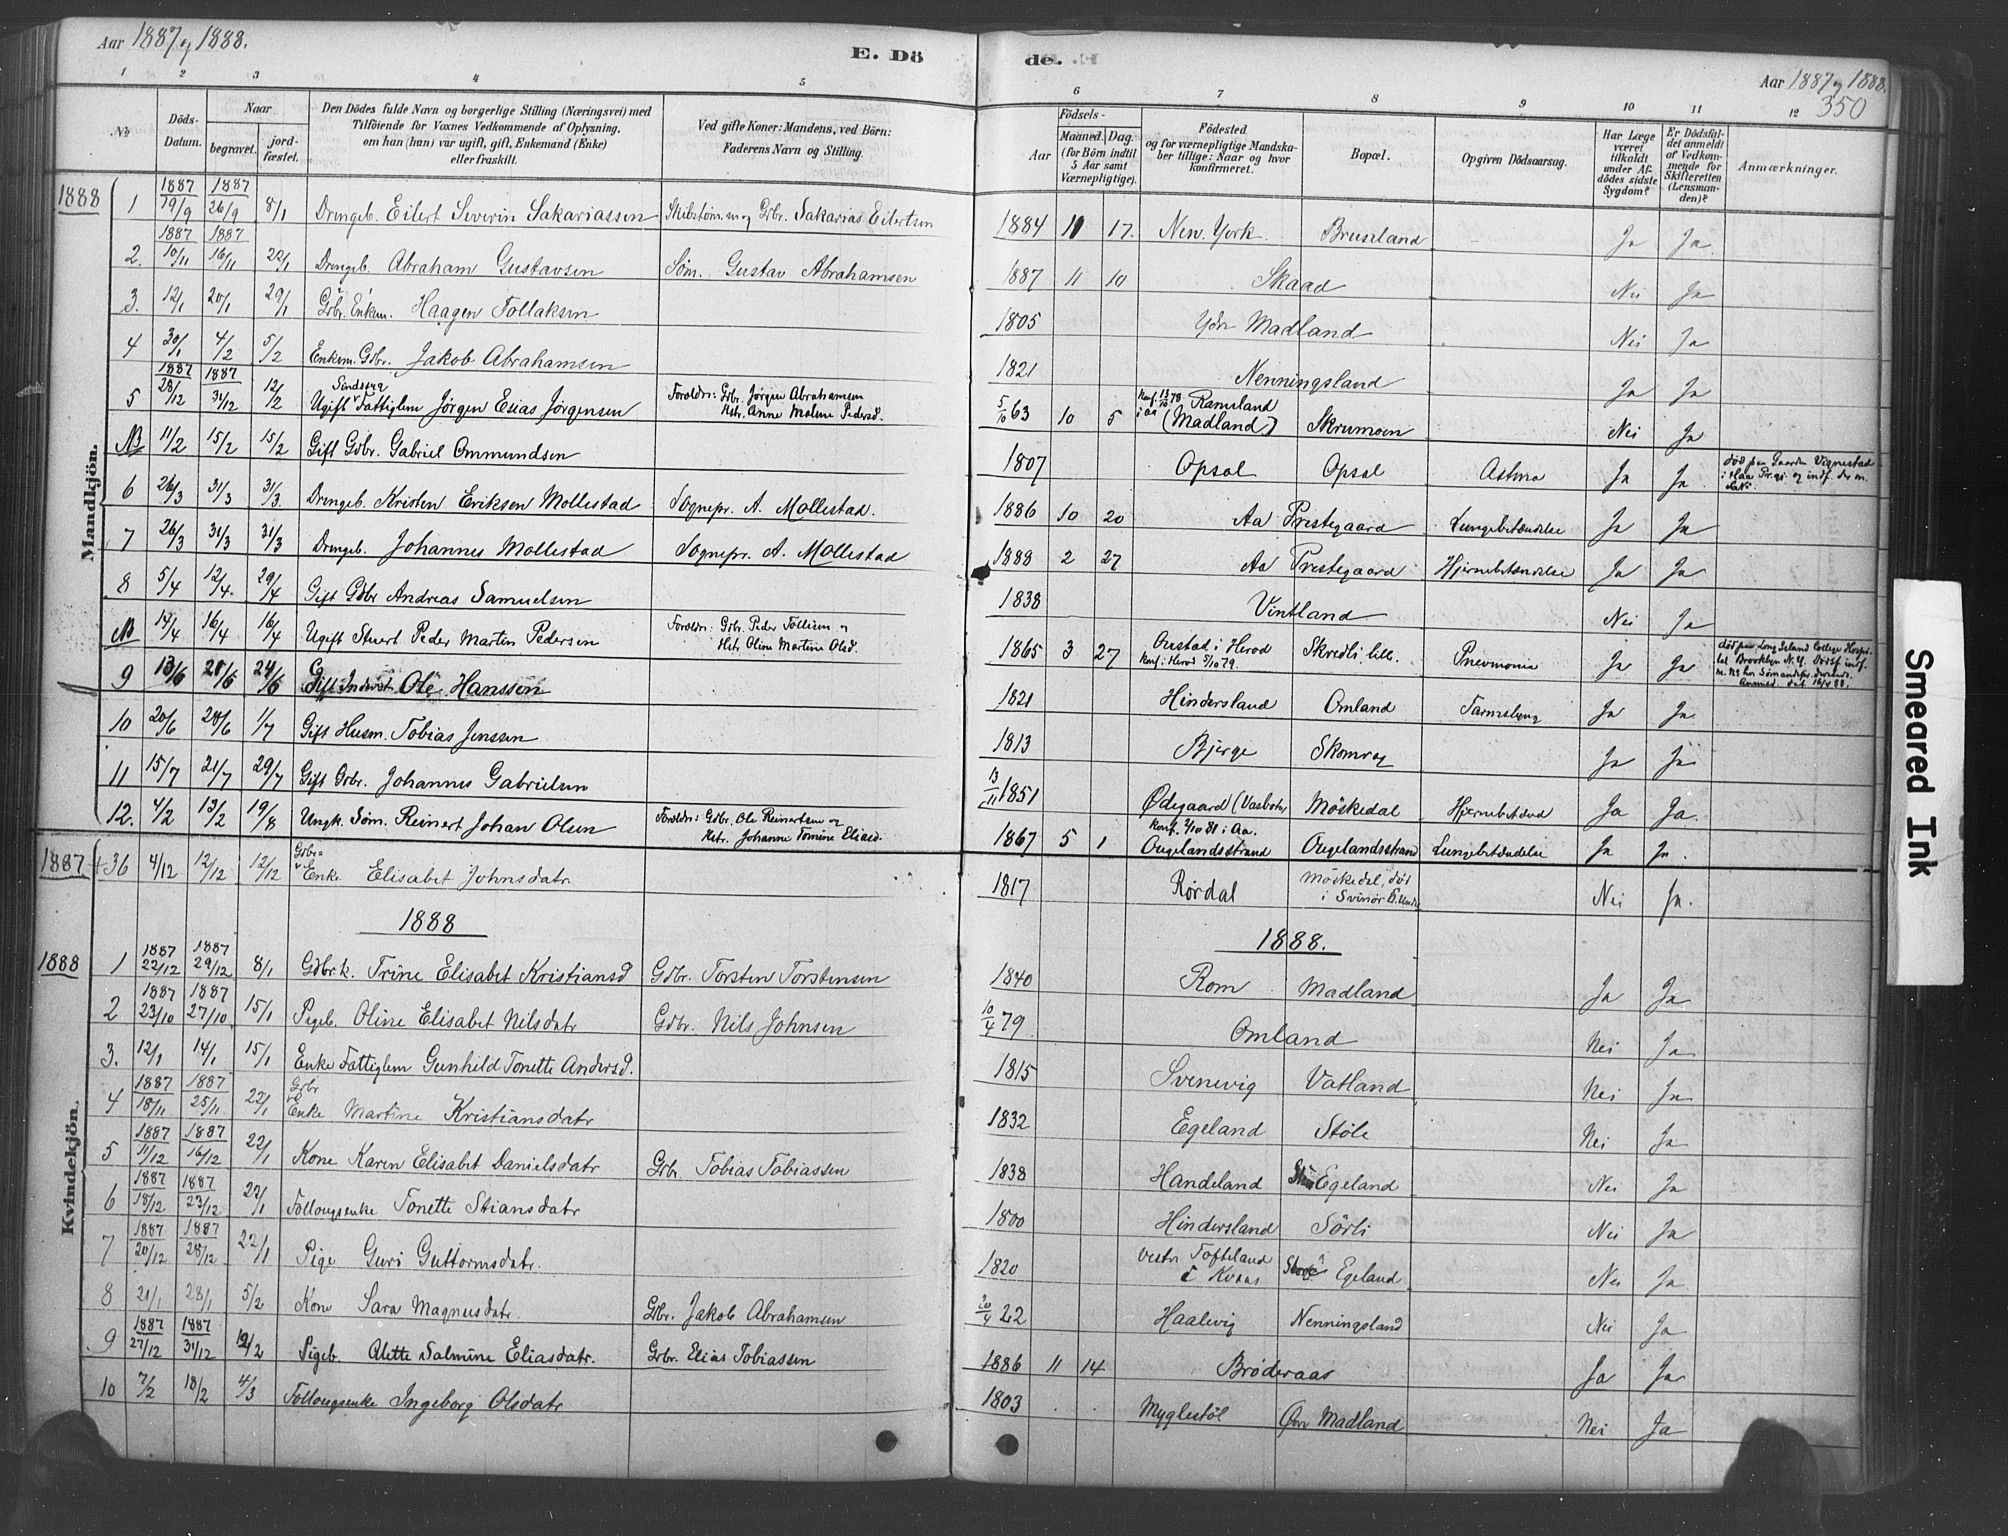 Aar 1887 og 1888.
E. Dö
de.
Aar 1887 og 1888.
350
1 2 3 4 5
6 7 8 9 10 11 12
No
Döds-Datum.
Naar
begravet.
jord-fæstet.
Den Dödes fulde Navn og borgerlige Stilling (Næringsvei) med
Tilföiende for Voxnes Vedkommende af Oplysning,
om han (hun) var ugift, gift, Enkemand (Enke)
eller fraskilt.
Ved gifte Koner: Mandens, ved Börn:
Faderens Navn og Stilling.
Födsels-
Aar
Maaned. Dag.
(for Börn indtil
5 Aar samt
Værnepligtige).
Födested
og for værnepligtige Mandska-
ber tillige: Naar og hvor
konfirmeret.
Bopæl.
Opgiven Dödsaarsag.
Har Læge
været
tilkaldt
under Af-
dödes sidste
Sygdom?
Er Dödsfal-
det anmeldt
af Vedkom-
mende for
Skifteretten
(Lensman-
den)?
Anmærkninger.
Mandkjön.
1888
1 1887 19/9 1887 26/9 8/1 Drengeb. Eilert Severin Sakariassen Skibstøm.m og Gbr. Sakarias Eilertsen 1884 11 17. New York Bruseland Ja Ja.
2. 1887 10/11 1887 16/11 22/1 Drengeb. Abraham Gustavsen Søm. Gustav Abrahamsen 1887 11 10 Skaad Nei Ja
3. 12/1 20/1 29/1 Gbr. Enkem. Haagen Tollaksen 1805 Ydr Madland Nei Ja
4 30/1 4/2 5/2 Enkem. Gdbr. Jakob Abrahamsen 1821 Nenningsland Ja Ja
5 1887 28/12 1887 31/12 12/2 Ugift Sindssyg Fattiglem Jørgen Esias Jørgensen Forældre: Gbr. Jørgen Abrahamsen Hstr. Anne Malene Pedersd. 5/10 63 10 5 Konf. 13/10 78 i Aa Ramsland (Madland) Skrumoen Nei Ja
NB 11/2 15/2 15/2 Gift Gdbr. Gabriel Ommundsen 1807 Opsal Opsal Astma Ja Ja død paa Gaarden Vignestad i Haa Pr.gj. og indf. der m. No
6 26/3 31/3 31/3 Drengeb. Kristen Eriksen Mollestad Sognepr. A. Mollestad. 1886 10 20 Aa Prestegaard Lungebetændelse Ja Ja
7 26/3 31/3 31/3 Drengeb. Johannes Mollestad Sognepr. A. Mollestad 1888 2 27 Aa Prestegaard Hjernebetændelse Ja Ja
8 5/4 12/4 29/4 Gift Gdbr Andreas Samuelsen 1838 Vintland Nei Ja
NB 14/4 16/4 16/4 Ugift Stuert Peder Martin Pedersen Forældre: Gbr. Peder Tollisen og Hstr. Oline Martine Olsd. 1865 3 27 Oustad i Herod Konf. i Herod 5/10 79. Skredli, lille. Pnevmonia Ja Ja død paa Long Island College Hospital Brooklyn N.Y.
9 13/6 20/6 24/6 Gift Inderst Ole Hanssen 1821 Hindersland Omland Ja Ja
10 20/6 28/6 1/7 Gift Husm. Tobias Jenssen 1813 Bjerge Skomrag Ja Ja
11 15/7 21/7 29/7 Gift Gbr. Johannes Gabrielsen 13/11 1851 Ødegaard (Vasbotn) Möskedal Hjernebetænd Ja Ja.
12. 4/2 13/2 19/8 Ungk. Søm. Reinert Johan Olsen Forældre: Gdbr. Ole Reinertsen og Hstr. Johanne Tomine Eliasd. 1867 5 1 Konf. 2/10 81 i Aa. Ougelandsstrand Ougelandsstrand Lungebetændelse Ja Ja.
1887 +36 4/12 12/12 12/12 Gdbr. Enke Elisabet Johnsdatr 1817 Rørdal Möskedal, død i Svinör Nei Ja.
1888
1888.
Kvindekjön.
1888
1 1887 22/12 1887 29/12 8/1 Gdbrk. Trine Elisabet Kristiansd Gdbr. Torsten Torstensen 1840 Rom Madland Ja Ja
2 1887 23/10 1887 27/10 15/1 Pigeb. Oline Elisabet Nilsdatr Gdbr. Nils Johnsen 10/4 79 Omland Nei Ja
3. 12/1 14/1 15/1 Enke Fattiglem Gunhild Tonette Andersd. 1815 Svenevig Vatland Nei Ja
4 1887 18/11 1887 25/11 22/1 Gbr Enke Martine Kristiansdatr 1832 Egeland Stöle Nei Ja
5 1887 11/12 1887 16/12 22/1 Kone Karen Elisabet Danielsdatr Gbr. Tobias Tobiassen 1838 Handeland Egeland Nei Ja
6 1887 18/12 1887 23/12 22/1 Follougsenke Tonette Stiansdatr 1800 Hindersland Sörli Nei Ja
7 1887 20/12 1887 28/12 22/1 Pige Guri Guttormsdatr. 1820 Vestr Tofteland i Kvaas Egeland Nei Ja
8 21/1 28/1 5/2 Kone Sara Magnusdatr. Gbr. Jakob Abrahamsen 20/4 22 Haalevig Nenningsland Nei Ja
9 1887 27/12 1887 31/12 12/2 Pigeb. Alette Salmine Eliasdatr. Gbr. Elias Tobiassen 1886 11 14 Bröderaas Ja Ja
10 7/2 18/2 4/3 Follougsenke Ingeborg Olsdatr 1803 Myglestöl Øvr Madland Nei Ja
Smeared Ink